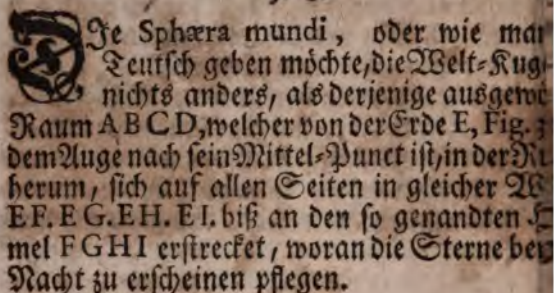 Die Sphæra mundi, oder wie man
Teutsch geben möchte, die Welt-Kug
nichts anders, als derjenige ausgewö
Raum ABCD, welcher von der Erde E, Fig. 
dem Auge nach sein Mittel-Punct ist, in der
herum, sich auf allen Seiten in gleicher W
EF. EG. EH. EI. biß an den so genandten
mel FGHI erstrecket, woran die Sterne bey
Nacht zu erscheinen pflegen.